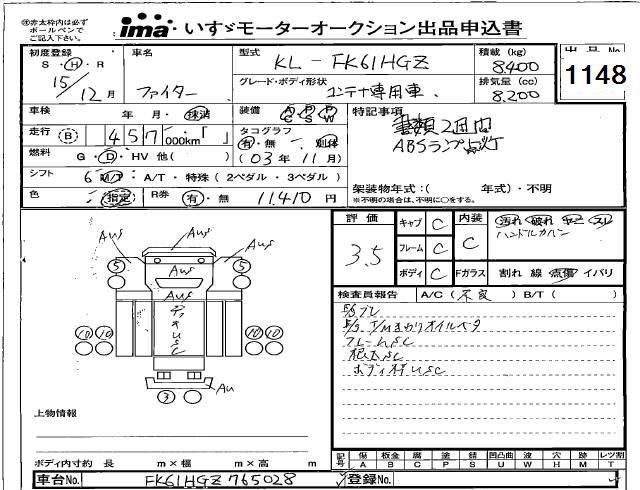 ㊟赤太枠内は必ず
ボールペンで
ご記入下さい。
ima いすゞモーターオークション出品申込書
初度登録 S・H・R 15/12月
車名 ファイター
型式 KL-FK61HGZ
グレード・ボディ形状 コンテナ専用車
積載(kg) 8400
排気量(cc) 8.200
出品No. 1148
車検 年・月・抹消
走行 B 457 000km「 」
燃料 G・D・HV 他( )
シフト 6 M/T・A/T・特殊(2ペダル・3ペダル)
色 指定 R券 有・無 11.410円
装備 A/C P/S P/W
タコグラフ 有・無 別体
(03年11月)
特記事項
書類2週間
ABSランプ点灯
架装物年式:( 年式)・不明
※不明の場合は、不明に○をする。
評価 3.5
キャブ C
フレーム C
ボディ C
内装 C
汚れ 破れ キズ スレ
ハンドルカバー
Fガラス 割れ 線 点傷 イバリ
検査員報告 A/C(不良)B/T( )
E/gブレ
E/g. T/Mまわりオイルベタ
フレームSC
ボディ枠USC
AUS
AUS
AUS
AUS
AUS
5
5
10 10
10 10
3
AU
上物情報
ボディ内寸約 長 m×幅 m×高 m
記号 傷A 板金B 腐C 塗P 錆S 凹凸曲U 波W 穴H 跡M レツ割T
車台No. FK61HGZ 765028
登録No.